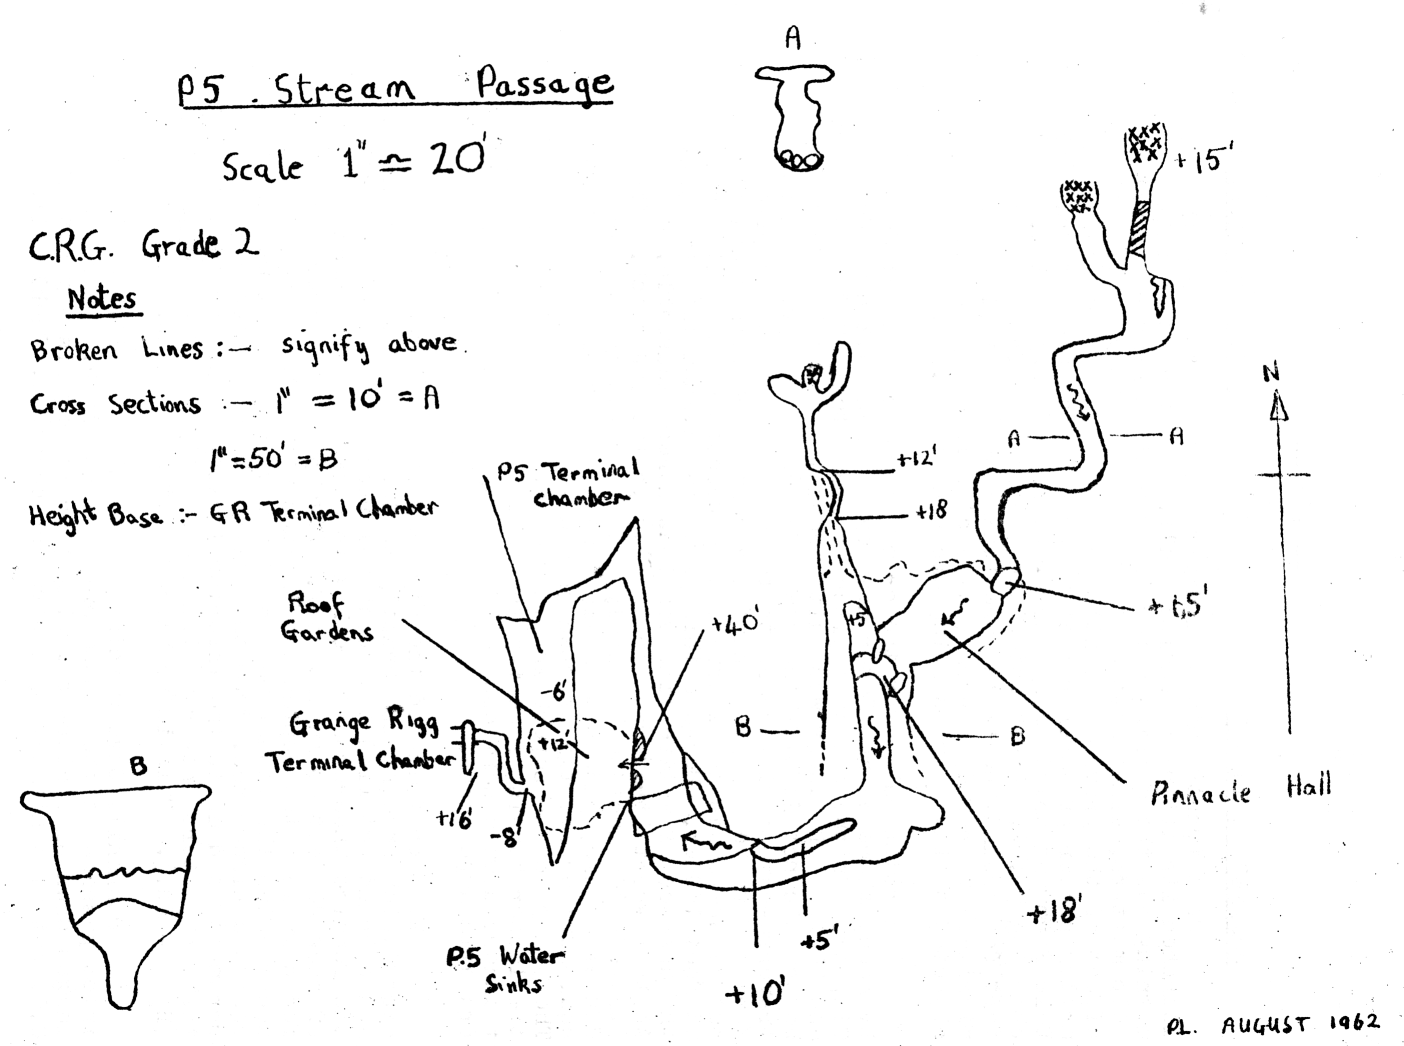 P5. Stream Passage
Scale 1" ≏ 20'
C.R.G. Grade 2
Notes
Broken Lines :- signify above.
Cross Sections :- 1" = 10' = A
1" = 50' = B
Height Base :- GR Terminal Chamber
A
+15'
N
A
A
+12'
+18
P5 Terminal
chamber
Roof
Gardens
+40'
+5'
-6'
+12'
Grange Rigg
Terminal Chamber
+16'
-8'
B
B
Pinnacle Hall
B
+18'
+5'
+10'
P.5 Water
Sinks
P.L. AUGUST 1962